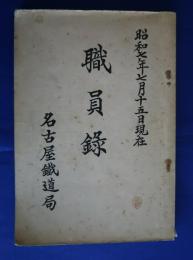 昭和七年七月十五日現在
職員錄
名古屋鐵道局